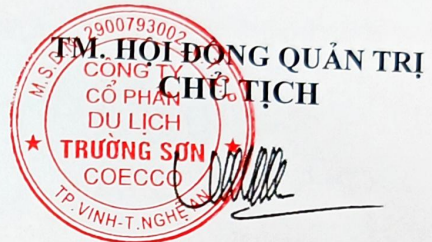 TM. HỘI ĐỒNG QUẢN TRỊ
CHỦ TỊCH
2900793002
CÔNG TY
CỔ PHẦN
DU LỊCH
TRƯỜNG SƠN
COECCO
TP.VINH-T.NGHỆ AN